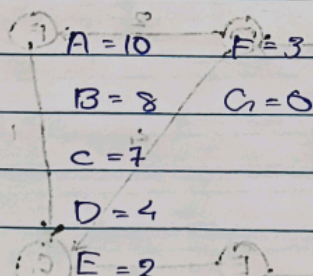 A = 10 F = 3
B = 8 G = 0
C = 7
D = 4
E = 2